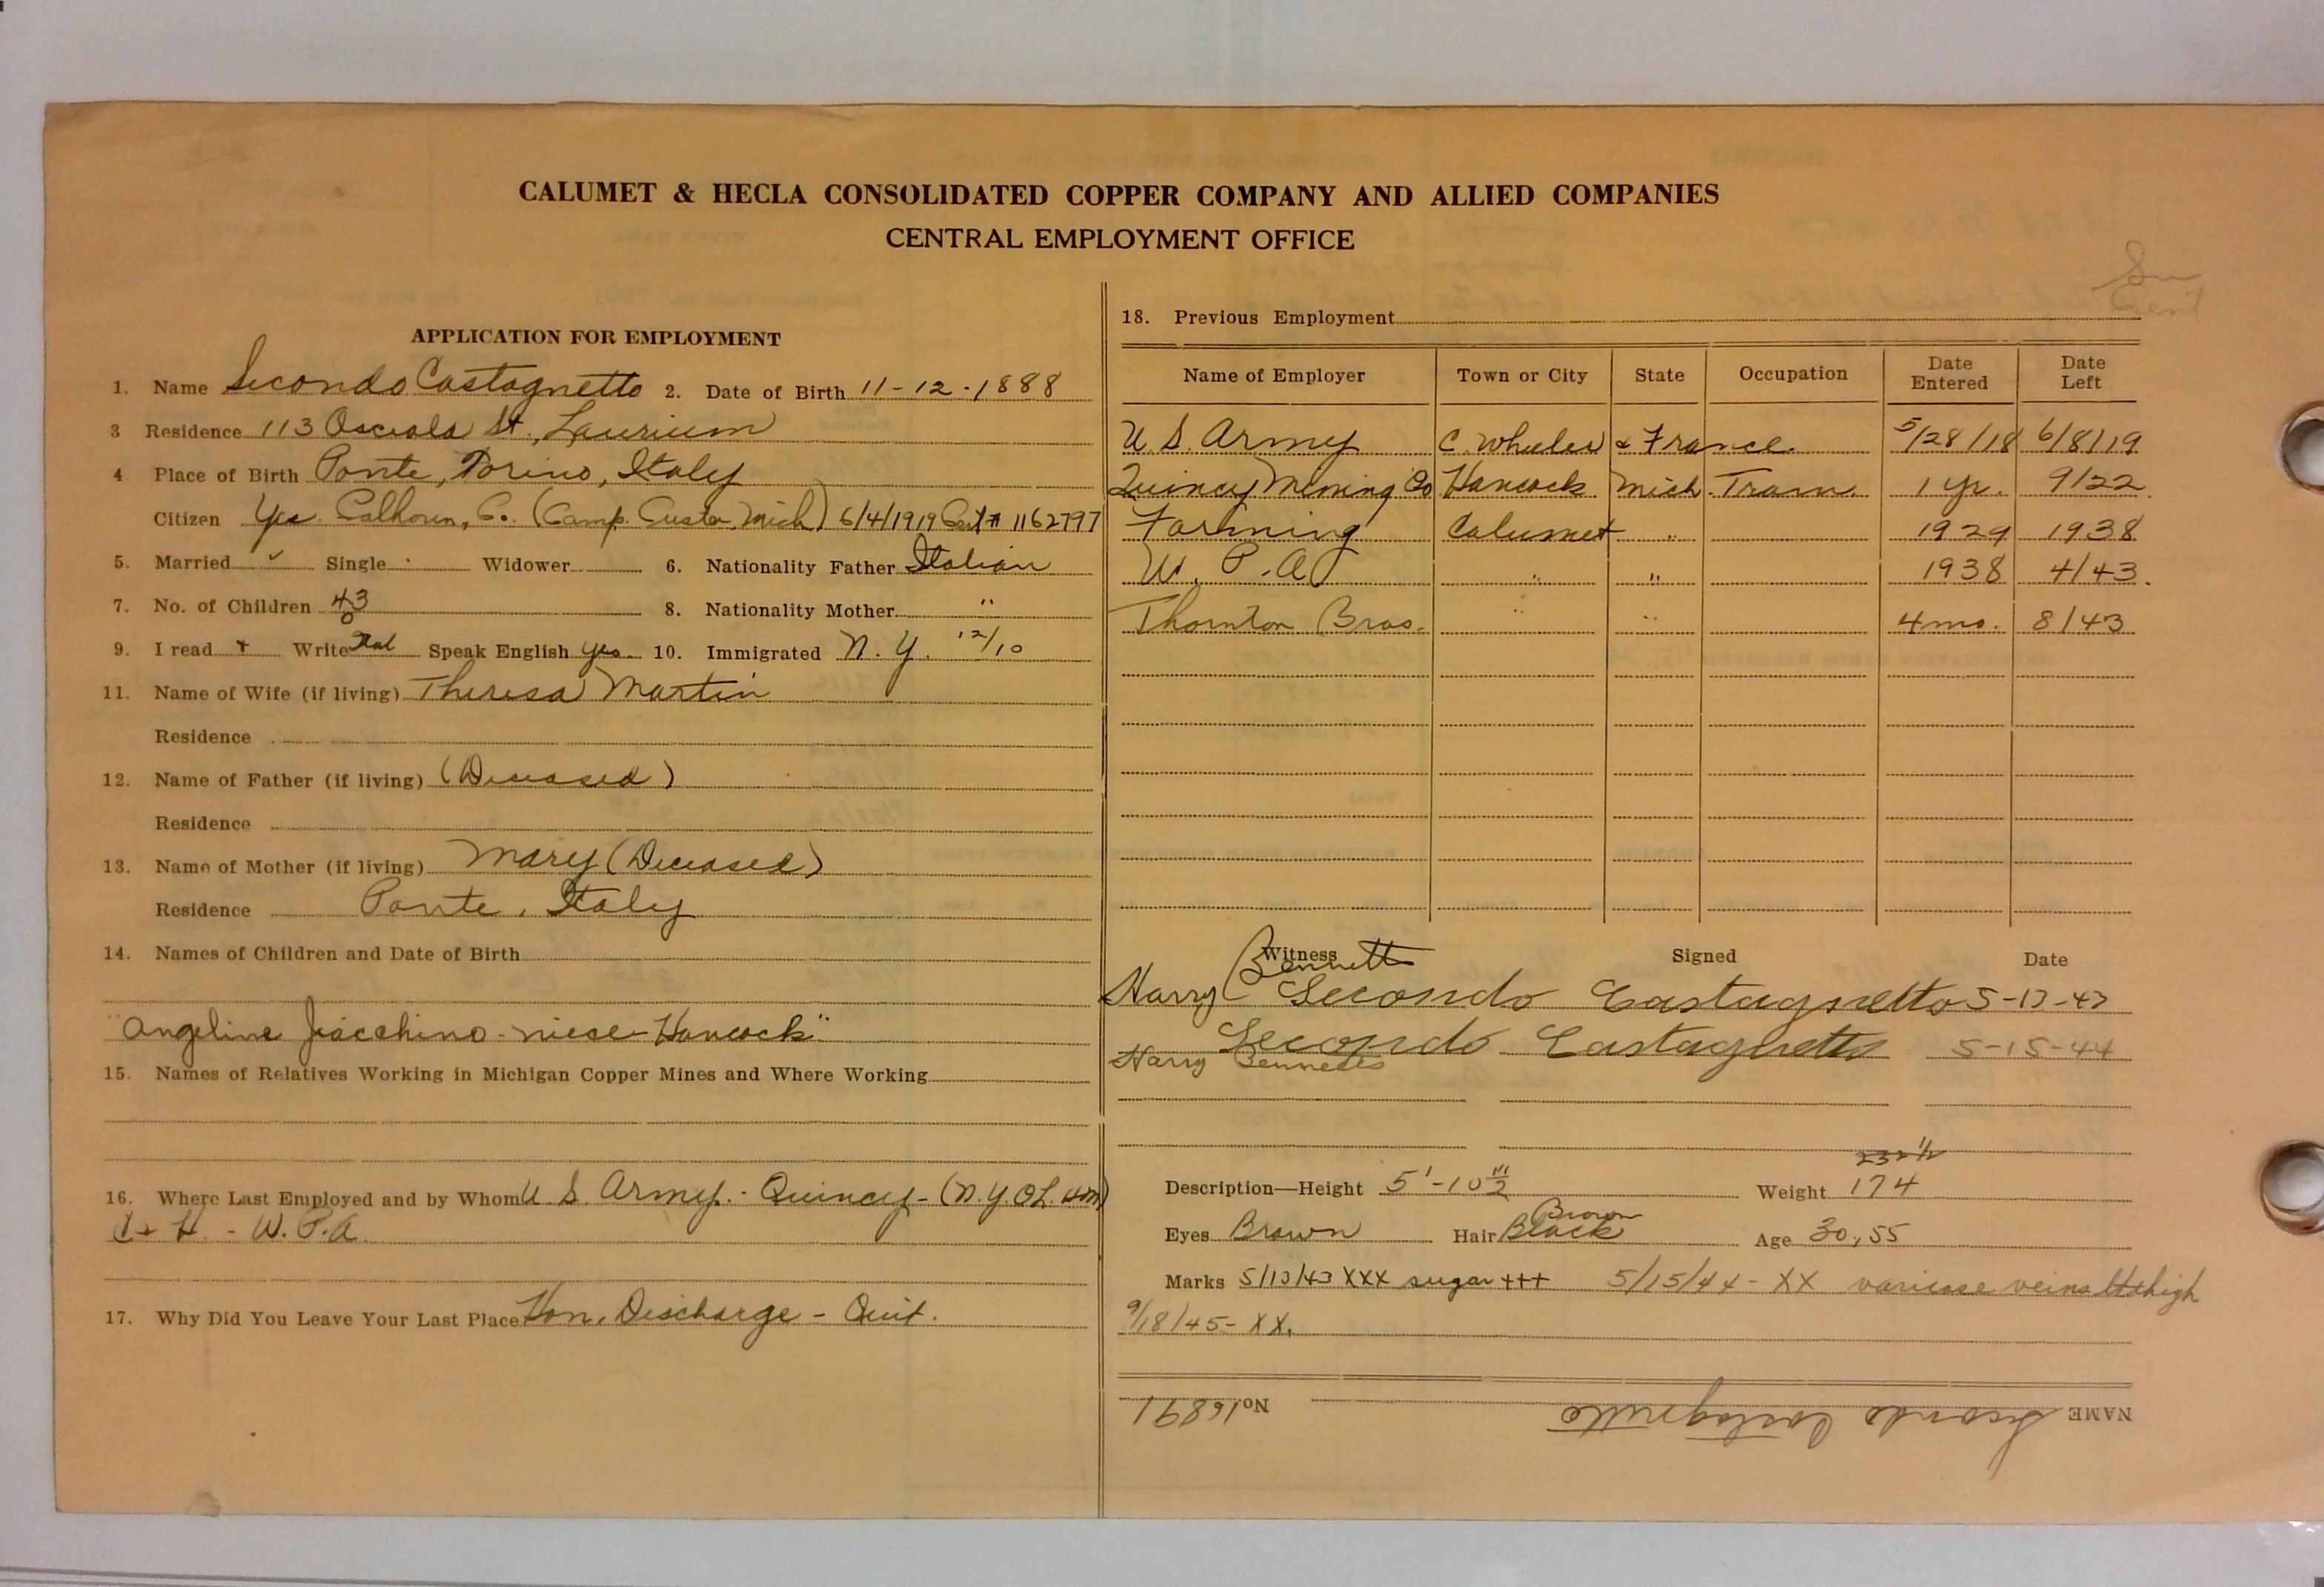 CALUMET & HECLA CONSOLIDATED COPPER COMPANY AND ALLIED COMPANIES
CENTRAL EMPLOYMENT OFFICE
APPLICATION FOR EMPLOYMENT
1. Name Secondo Castagnetto 2. Date of Birth 11-12-1888
3 Residence 113 Osceola St., Laurium
4 Place of Birth Ponte, Torino, Italy
Citizen Yes. Calhoun, Co. (Camp. Custer, Mich) 6/4/1919 Cert # 1162797
5. Married ✓ Single Widower 6. Nationality Father Italian
7. No. of Children 43 8. Nationality Mother "
9. I read + Write Ital Speak English yes. 10. Immigrated N. Y. 12/10
11. Name of Wife (if living) Theresa Martin
Residence
12. Name of Father (if living) (Deceased)
Residence
13. Name of Mother (if living) Mary (Deceased)
Residence Ponte, Italy
14. Names of Children and Date of Birth
"Angeline Jiacchino - niese - Hancock"
15. Names of Relatives Working in Michigan Copper Mines and Where Working
16. Where Last Employed and by Whom U. S. Army. - Quincy -
C + H. - W. P. A.
17. Why Did You Leave Your Last Place Hon. Discharge - Quit.
18. Previous Employment
Cent
Name of Employer Town or City State Occupation Date Entered Date Left
U. S. Army C. Wheeler & France. 5/28/18 6/8/19
Quincy Mining Co Hancock Mich. Tram. 1 yr. 9/22
Farming Calumet " 1929 1938
W. P. A " " 1938 4/43.
Thornton Bros. " " 4 mo. 8/43
Witness Signed Date
Harry Bennetts Secondo Castagnetto 5-13-43
Harry Bennetts Secondo Castagnetto 5-15-44
232 1/2
Description—Height 5'-10 1/2" Weight 174
Eyes Brown Hair Black Brown Age 30, 55
Marks 5/13/43 XXX sugar +++ 5/15/44 - XX varicose veins lt thigh
9/18/45 - XX.
NAME Secondo Castagnetto No 16891